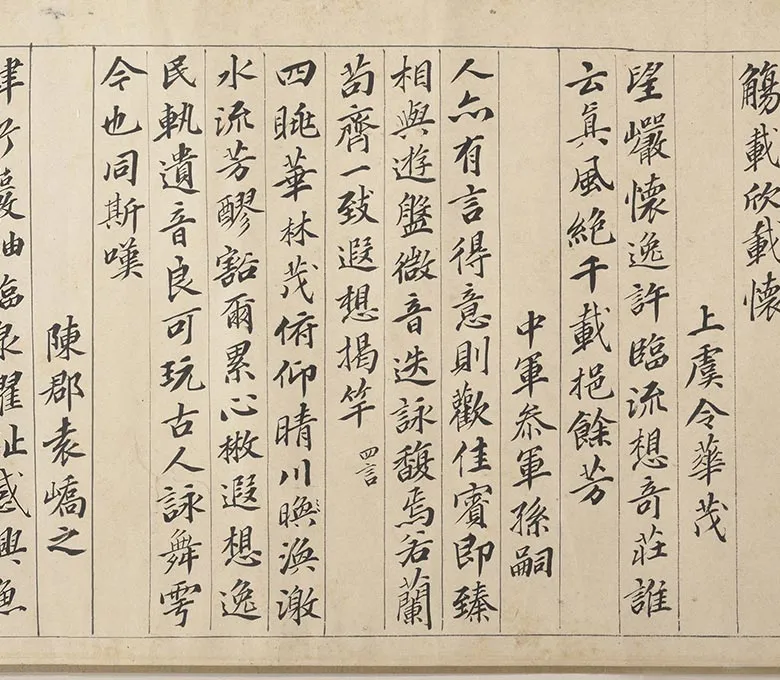 觴載欣載懷
上虞令華茂
望巗懷逸許臨流想奇莊誰
云眞風絕千載挹餘芳
中軍叅軍孫嗣
人亦有言得意則歡佳賓即臻
相與遊盤微音迭詠馥焉若蘭
苟齊一致遐想揭竿 四言
四眺華林茂俯仰晴川暎渙激
水流芳醪豁爾累心散遐想逸
民軌遺音良可玩古人詠舞雩
今也同斯嘆
陳郡袁嶠之
肆眄巖岫臨泉濯趾感興魚